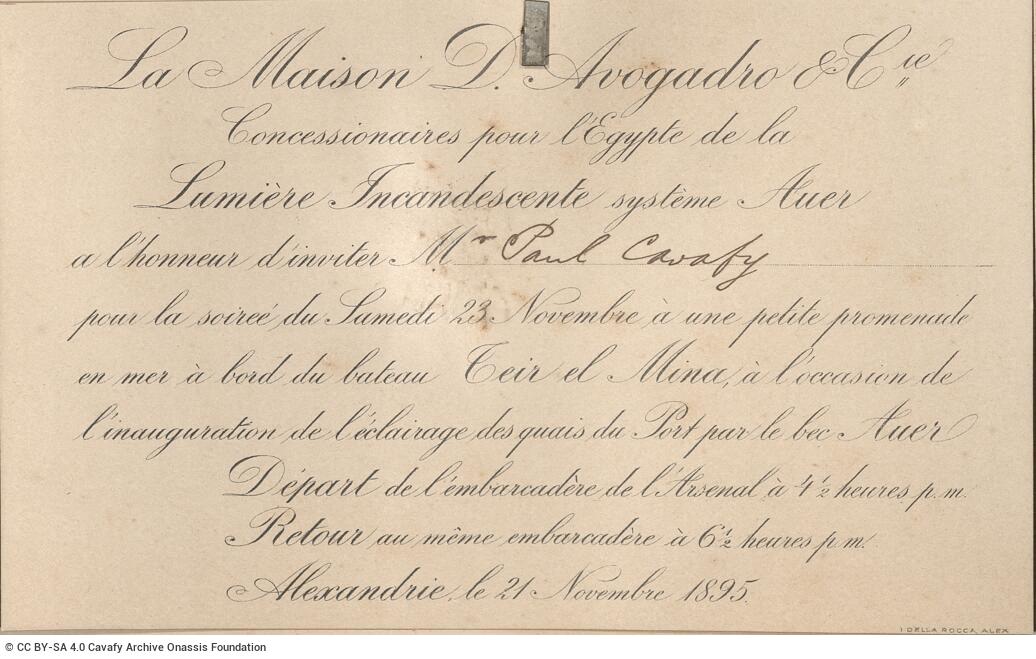 La Maison D. Avogadro & Cie
Concessionaires pour l'Egypte de la
Lumière Incandescente système Auer
a l'honneur d'inviter Mr Paul Cavafy
pour la soireé du Samedi 23 Novembre à une petite promenade
en mer à bord du bateau Teir el Mina, à l'occasion de
l'inauguration de l'éclairage des quais du Port par le bec Auer
Départ de l'embarcadère de l'Arsenal à 4 1/2 heures p.m.
Retour au même embarcadère à 6 1/2 heures p.m.
Alexandrie, le 21 Novembre 1895.
I DELLA ROCCA, ALEX.
© CC BY-SA 4.0 Cavafy Archive Onassis Foundation